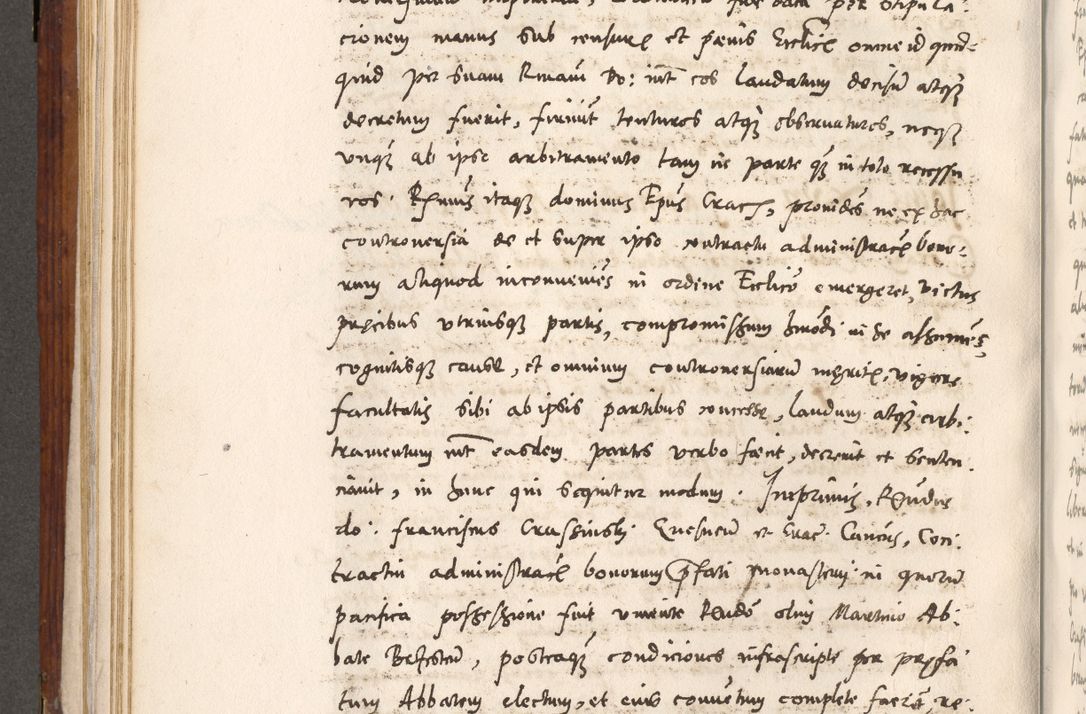 cionem manus sub censuris et pœnis Ecclicis omne id quid-
quid per suam Rmam Do: inter eos laudatum decisum atque
decretum fuerit, firmiter tenturos atque observaturos, neque
unque ab ipso arbitramento tam in parte quam in toto recessu
ros. Rssimus itaque dominus Epus Crac, providens ne ex hac
controversia de et super ipso contractu administracionis bono:
rum aliquod inconveniens in ordine Ecclico emergeret, victus
precibus utriusque partis, compromissum hmodi in se assumens,
cognitisque causae, et omnium controversiarum meritis, vigore
facultatis sibi ab ipsis partibus concessae, laudum atque arbi:
tramentum inter easdem partes verbo fecit, decrevit et senten
ciavit, in hunc qui sequitur modum. Inprimis, Rvndus
do: franciscus Crassinski et Crac Cancus, Con:
tractui administracionis bonorum prefati monasterii in quorum
pacifica possessione fuit vivente Rvndo olim Martino Ab:
bate , posteaque condiciones infrascripte per prefa
tum Abbatem electum, et eius conventum complete fuerint, re: